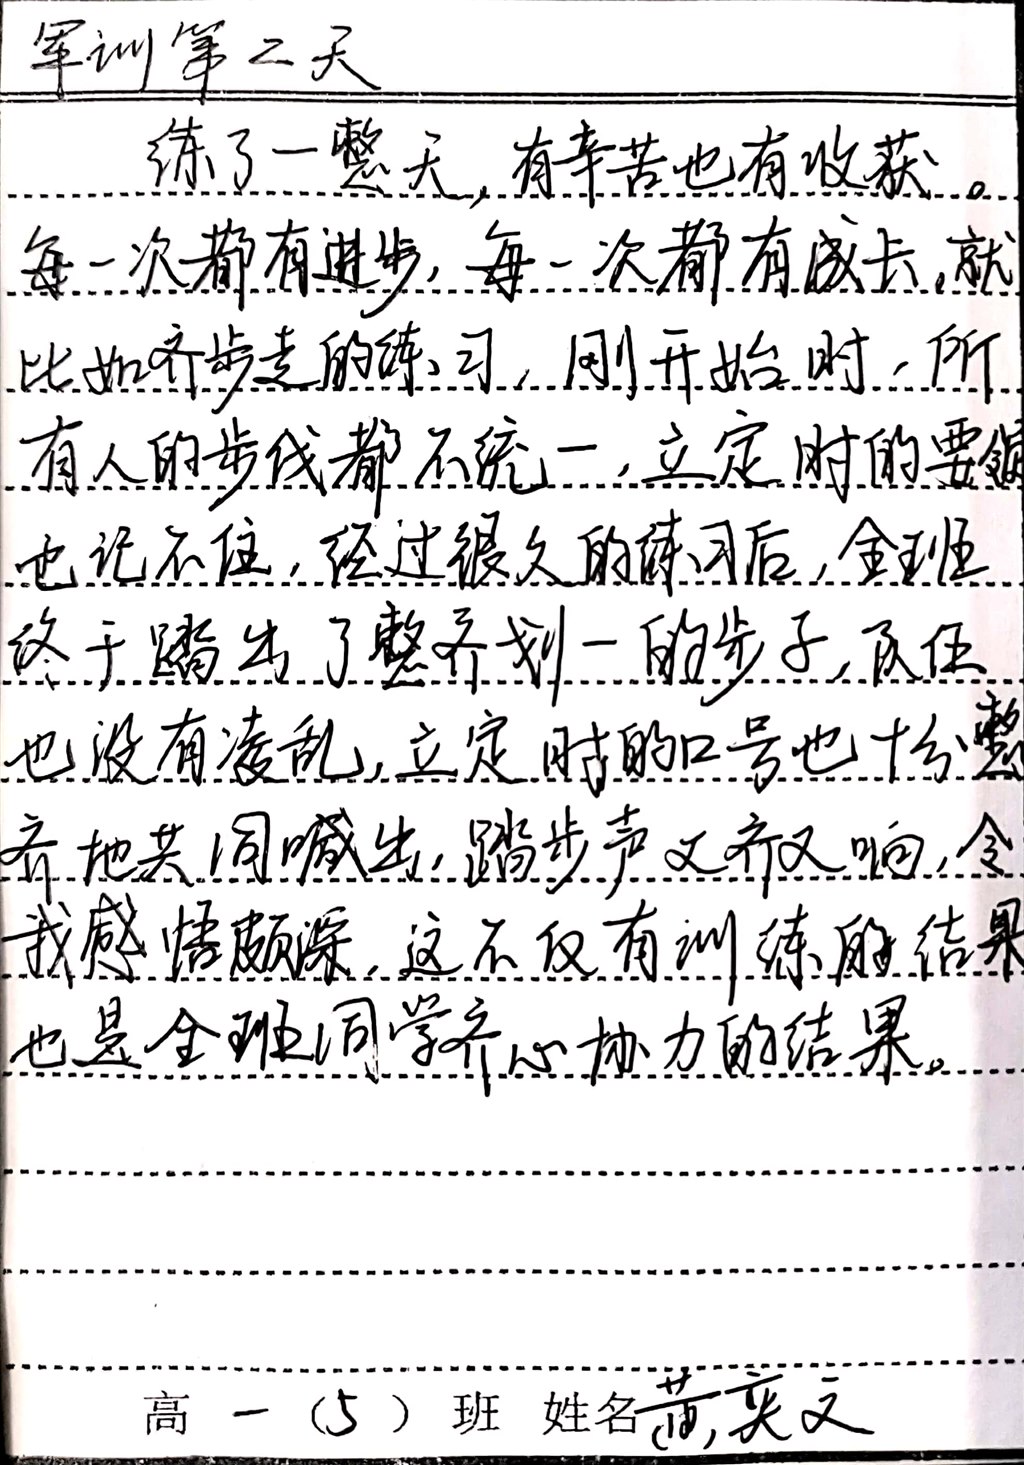 军训第二天
练了一整天，有辛苦也有收获。
每一次都有进步，每一次都有成长，就
比如齐步走的练习，刚开始时，所
有人的步伐都不统一，立定时的要领
也记不住，经过很久的练习后，全班
终于踏出了整齐划一的步子，队伍
也没有凌乱，立定时的口号也十分整
齐地共同喊出，踏步声又齐又响，令
我感悟颇深，这不仅有训练的结果
也是全班同学齐心协力的结果。
高一（5）班 姓名黄奕文